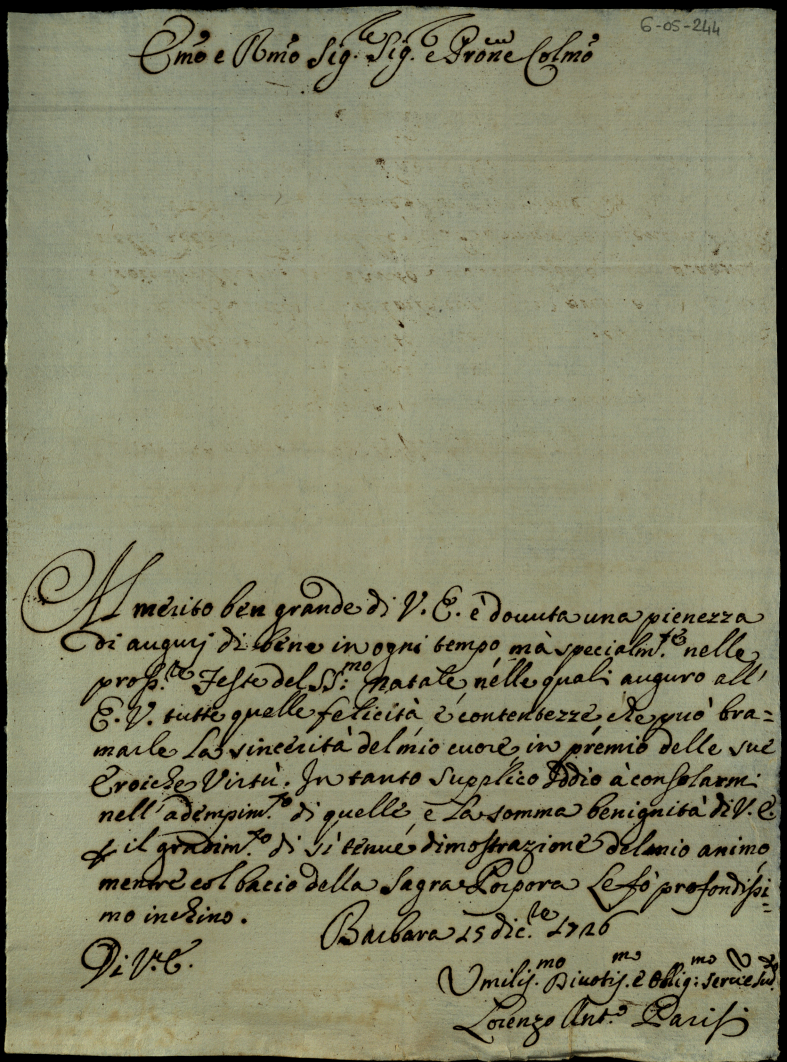 6-05-244
Emo e Rmo Sig.re Sig.re e Prone Colmo
Al merito ben grande di V. E. è douuta una pienezza
di augurj di bene in ogni tempo, mà specialm.te nelle
pross.e Feste del SS.mo natale, nelle quali auguro all'
E. V. tutte quelle felicità, e contentezze che può bra=
marle la sincerità del mio cuore, in premio delle sue
Eroiche Virtù. In tanto supplico Iddio à consolarmi
nell'adempim.to di quelle, e la somma benignità di V. E.
il gradim.to di sì tenue dimostrazione del mio animo,
mentre col bacio della Sagra Porpora Le fò profondissi=
mo inchino.
Barbara 15 dic.re 1726
Di V. E.
Vmilis.mo Diuotis.mo e Oblig.mo seru.e
Lorenzo Ant.o Parisi